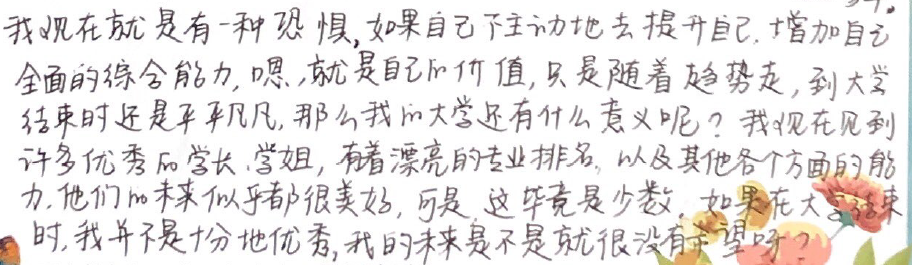 我现在就是有一种恐惧,如果自己不主动地去提升自己,增加自己
全面的综合能力,嗯,就是自己的价值,只是随着趋势走,到大学
结束时还是平平凡凡,那么我的大学还有什么意义呢?我现在见到
许多优秀的学长、学姐,有着漂亮的专业排名,以及其他各个方面的能
力,他们的未来似乎都很美好,可是,这毕竟是少数,如果在大学结束
时,我并不是十分地优秀,我的未来是不是就很没有希望呀?